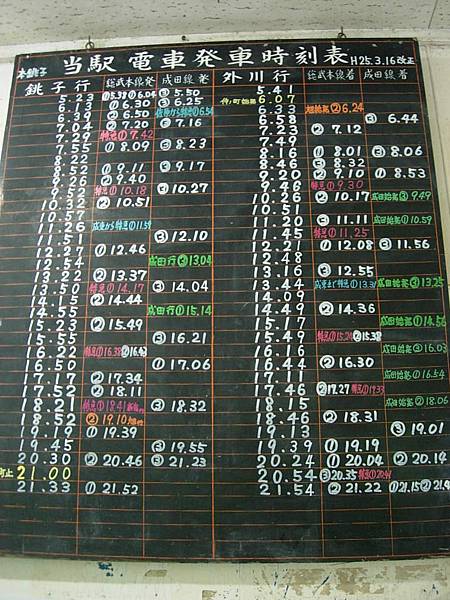 本銚子 当駅 電車発車時刻表 H25.3.16改正
銚子行 総武本線発 成田線発 外川行 総武本線着 成田線着
5.23 ①5.31 ①6.04 ③5.50 5.41
5.56 ①6.30 ③6.25 仲ノ町始発 6.07
6.39 ②6.50 6.33 ②6.24
7.04 ②7.20 ③7.16 6.58 ③6.44
7.29 特急①7.42 7.23 ②7.12
7.55 ①8.09 ③8.23 7.49
8.22 8.16 ①8.01 ③8.06
8.52 ①9.11 ③9.17 8.46 ③8.32
9.26 ②9.40 9.20 ②9.10 ①8.53
特急①10.18 ③10.27 9.46 特急①9.30
10.32 ②10.51 10.26 ②10.17 成田始発③9.49
10.57 10.51
11.26 成東から特急①11.59 11.20 ③11.11 成田始発①10.59
11.51 ③12.10 11.45 特急①11.25
12.27 ①12.46 12.21 ①12.08 ③11.56
12.54 成田行③13.04 12.48
13.22 ②13.37 13.16 ③12.55
13.50 特急①14.17 ③14.04 13.44 成東まで特急①13.31 成田始発③13.25
14.15 ②14.44 14.09
14.55 成田行①15.14 14.49 ②14.36
15.23 ②15.49 15.17 成田始発①14.56
15.55 ③16.21 15.49 特急①15.24 ②15.38
16.22 特急①16.38 16.16 成田始発③16.03
16.50 ①17.06 16.44 ②16.30
17.17 ②17.34 17.11 成田始発①16.54
17.52 ②18.11 17.46 ②17.27 特急①17.33
18.25 特急①18.41 ③18.32 18.15 成田始発②18.06
18.52 ②19.10 18.46 ②18.31
19.19 ①19.39 19.13 ③19.01
19.45 ③19.55 19.39 ①19.19
20.30 ②20.46 ③21.23 20.24 ①20.04 ②20.14
21.00 20.54 ③20.35
21.33 ①21.52 21.54 ②21.22 ①21.15